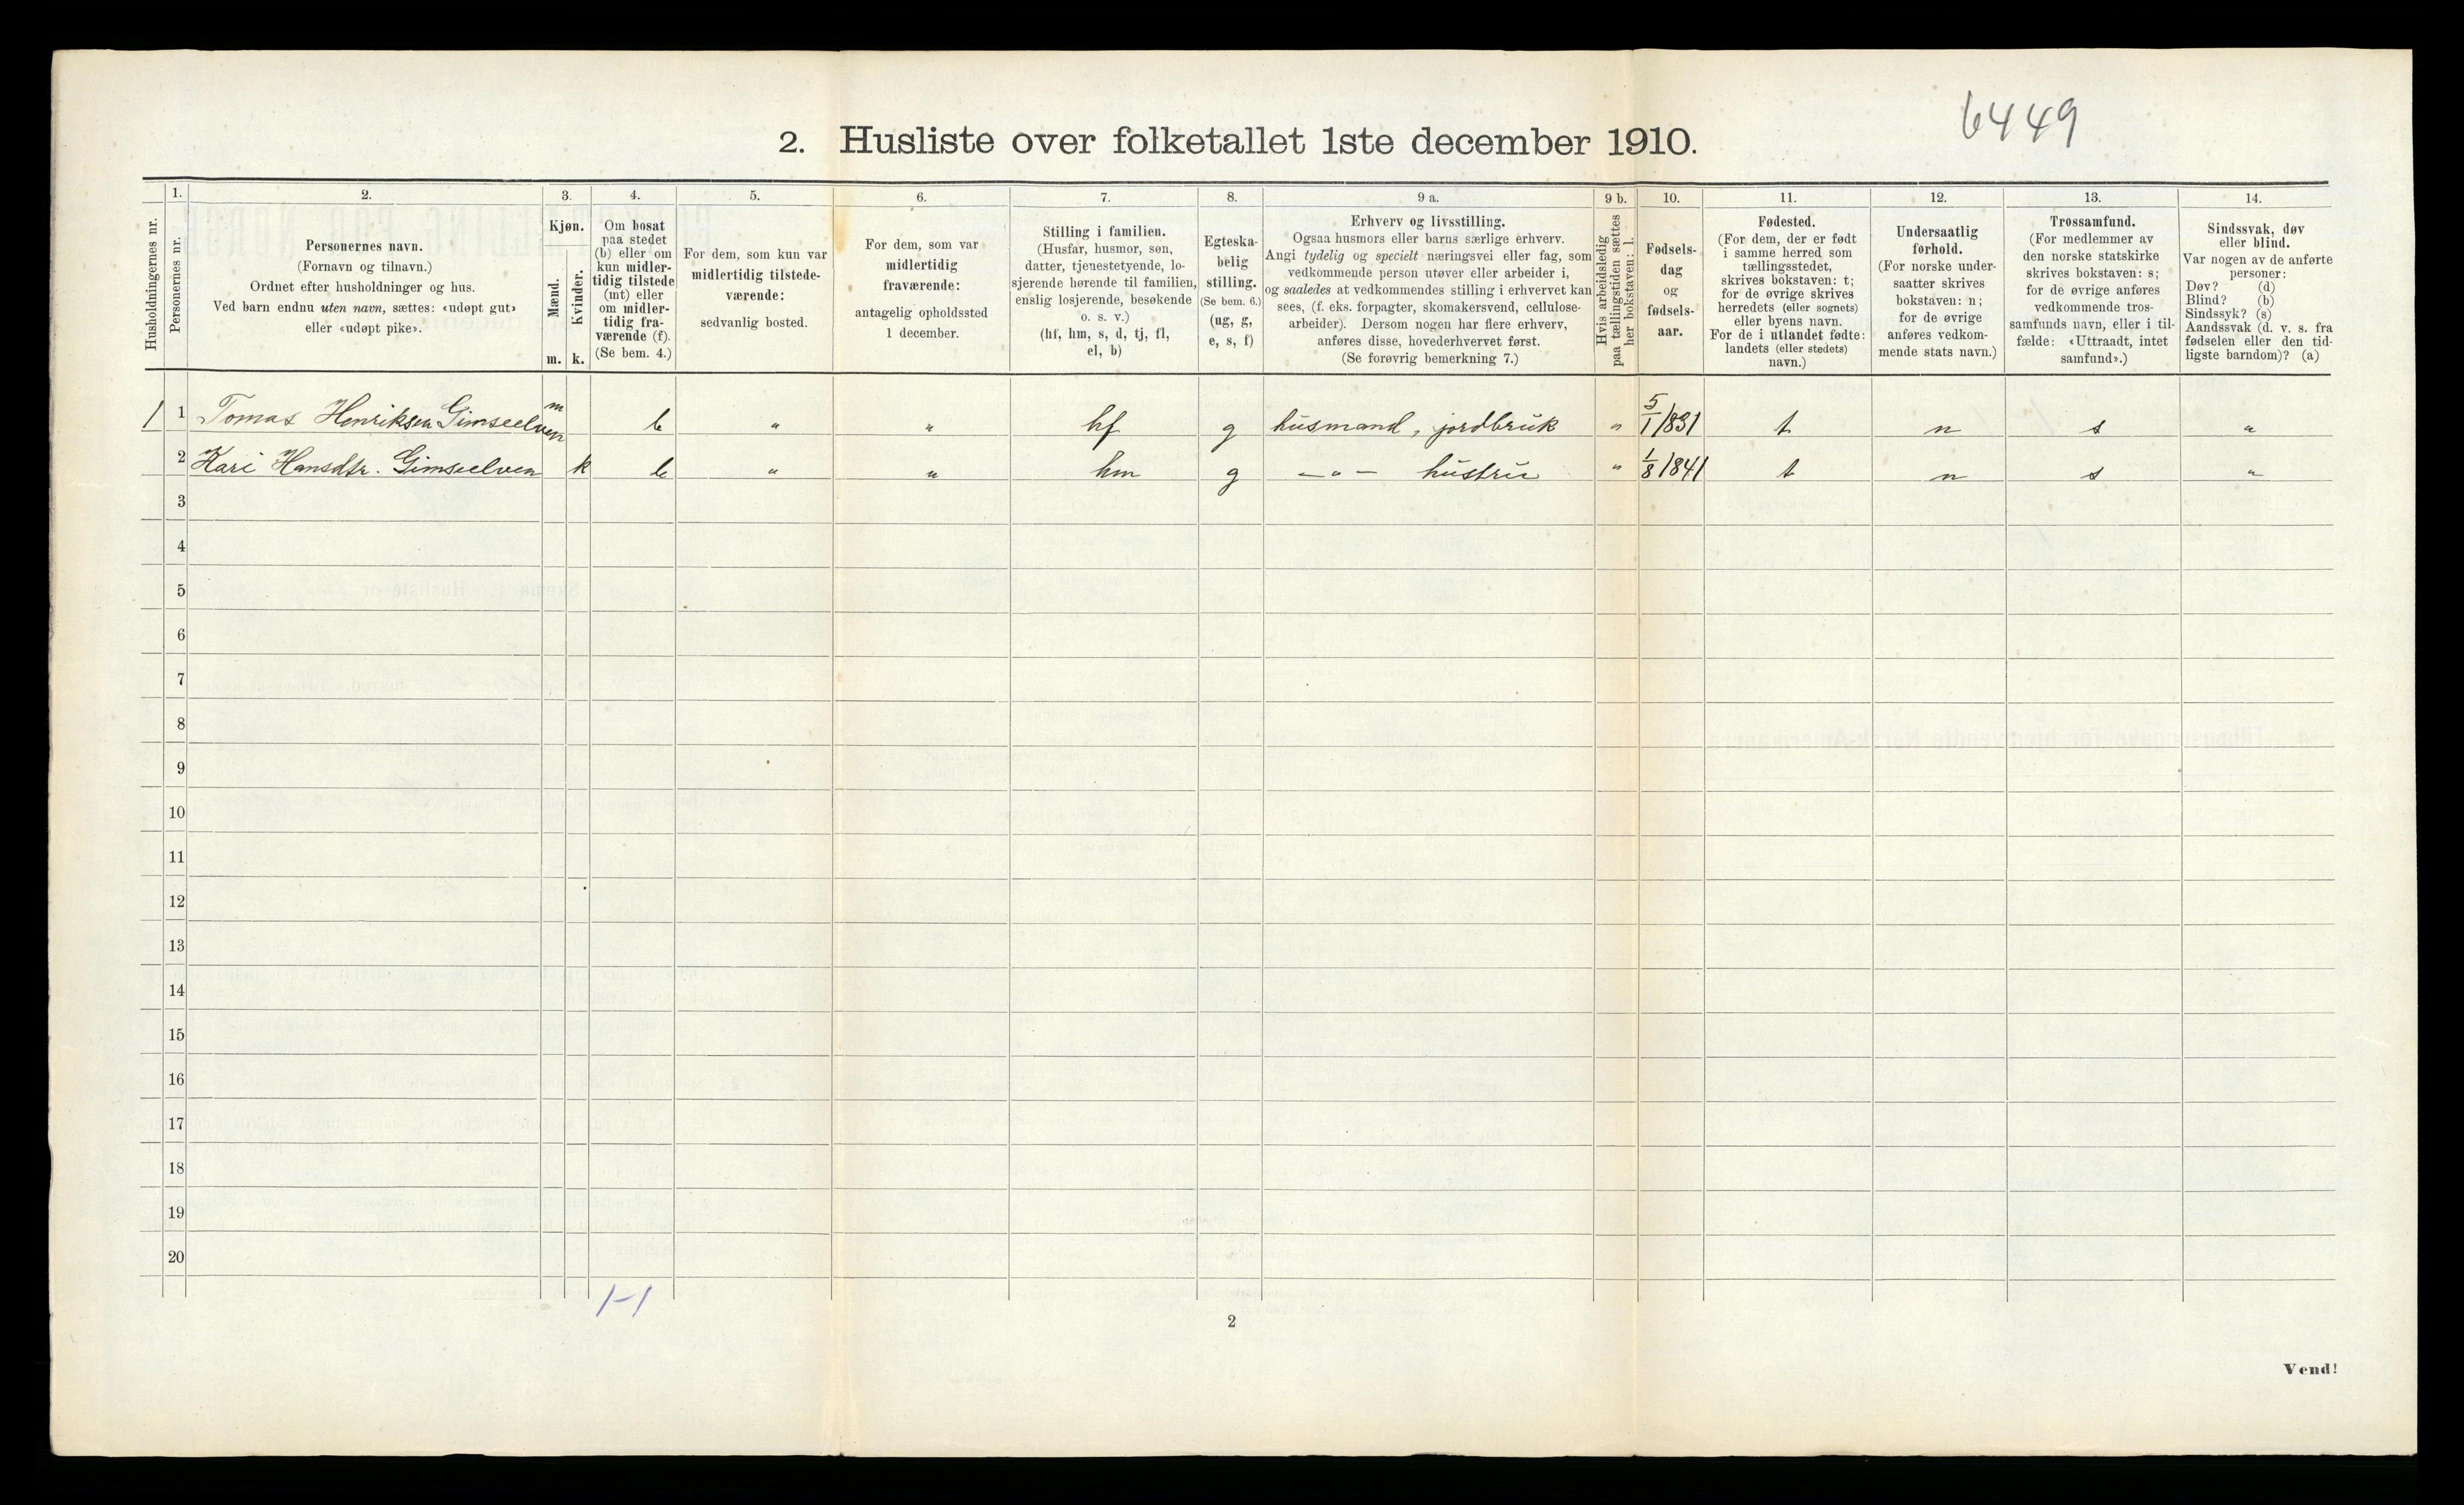 6449
2. Husliste over folketallet 1ste december 1910.
Husholdningernes nr.
1.
Personernes nr.
2.
Personernes navn.
(Fornavn og tilnavn.)
Ordnet efter husholdninger og hus.
Ved barn endnu uten navn, sættes: «udøpt gut»
eller «udøpt pike».
3.
Kjøn.
Mænd.
m.
Kvinder.
k.
4.
Om bosat
paa stedet
(b) eller om
kun midler-
tidig tilstede
(mt) eller
om midler-
tidig fra-
værende (f).
(Se bem. 4.)
5.
For dem, som kun var
midlertidig tilstede-
værende:
sedvanlig bosted.
6.
For dem, som var
midlertidig
fraværende:
antagelig opholdssted
1 december.
7.
Stilling i familien.
(Husfar, husmor, søn,
datter, tjenestetyende, lo-
sjerende hørende til familien,
enslig losjerende, besøkende
o. s. v.)
(hf, hm, s, d, tj, fl,
el, b)
8.
Egteska-
belig
stilling.
(Se bem. 6.)
(ug, g,
e, s, f)
9 a.
Erhverv og livsstilling.
Ogsaa husmors eller barns særlige erhverv.
Angi tydelig og specielt næringsvei eller fag, som
vedkommende person utøver eller arbeider i,
og saaledes at vedkommendes stilling i erhvervet kan
sees, (f. eks. forpagter, skomakersvend, cellulose-
arbeider). Dersom nogen har flere erhverv,
anføres disse, hovederhvervet først.
(Se forøvrig bemerkning 7.)
9 b.
Hvis arbeidsledig
paa tællingstiden sættes
her bokstaven: l.
10.
Fødsels-
dag
og
fødsels-
aar.
11.
Fødested.
(For dem, der er født
i samme herred som
tællingsstedet,
skrives bokstaven: t;
for de øvrige skrives
herredets (eller sognets)
eller byens navn.
For de i utlandet fødte:
landets (eller stedets)
navn.)
12.
Undersaatlig
forhold.
(For norske under-
saatter skrives
bokstaven: n;
for de øvrige
anføres vedkom-
mende stats navn.)
13.
Trossamfund.
(For medlemmer av
den norske statskirke
skrives bokstaven: s;
for de øvrige anføres
vedkommende tros-
samfunds navn, eller i til-
fælde: «Uttraadt, intet
samfund».)
14.
Sindssvak, døv
eller blind.
Var nogen av de anførte
personer:
Døv? (d)
Blind? (b)
Sindssyk? (s)
Aandssvak (d. v. s. fra
fødselen eller den tid-
ligste barndom)? (a)
1 1 Tomas Henriksen Gimseelven m b " " hf g husmand, jordbruk " 5/1 1831 t n s "
2 Kari Hansdtr. Gimseelven k b " " hm g — " — hustru " 1/8 1841 t n s "
3
4
5
6
7
8
9
10
11
12
13
14
15
16
17
18
19
20
1-1
2
Vend!